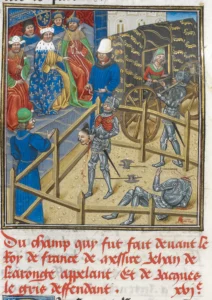 Du champ quy fut fait devant le
Roy de france de messire Jehan de
Karonge appelant Et de Jacques
le gris deffendant . xvjᵉ